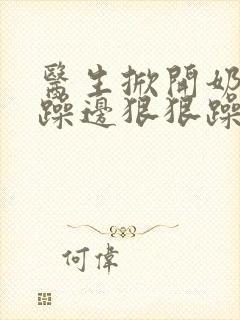 醫生掀開奶
躁邊狠狠躁
何偉